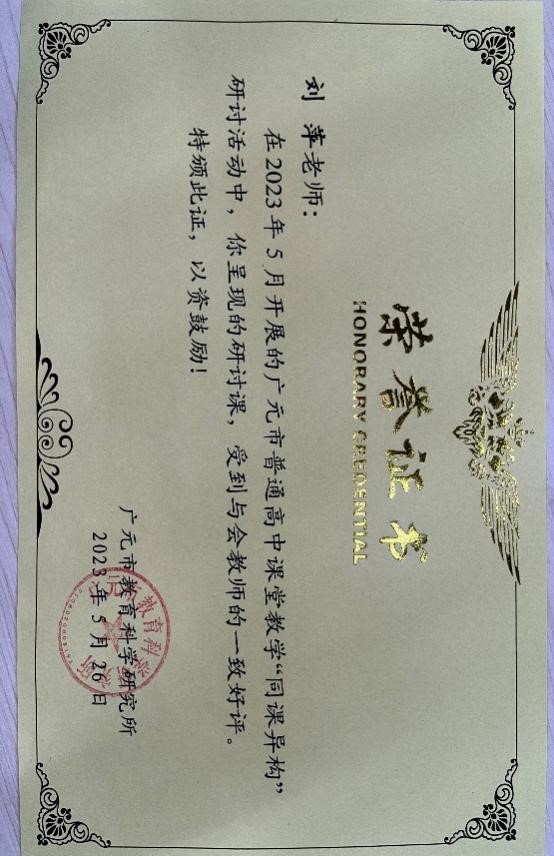 荣誉证书
HONORARY CREDENTIAL
刘 萍老师：
在2023年5月开展的广元市普通高中课堂教学“同课异构”
研讨活动中，你呈现的研讨课，受到与会教师的一致好评。
特颁此证，以资鼓励！
广元市教育科学研究所
2023年5月26日
广元市教育科学研究所